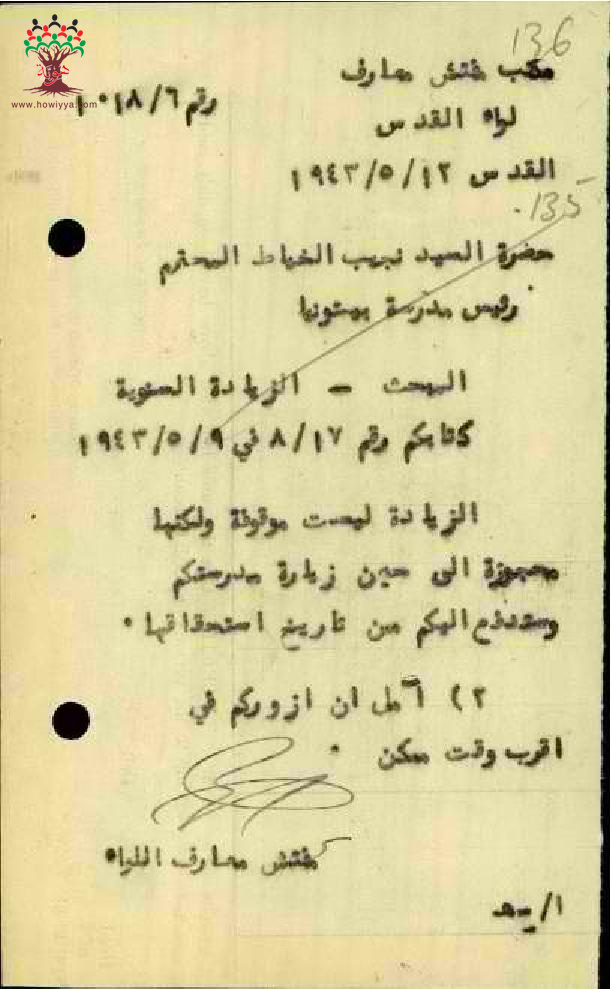 136
www.howiyya.com
مكتب مفتش معارف
رقم ١٠١٨/٦
لواء القدس
القدس ١٩٤٣/٥/١٢
135
حضرة السيد نجيب الخياط المحترم
رئيس مدرسة بيتونيا
البحث - الزيادة السنوية
كتابكم رقم ٨/١٧ في ١٩٤٣/٥/٩
الزيادة ليست موقوفة ولكنها
محجوزة الى حين زيارة مدرستكم
وستدفع اليكم من تاريخ استحقاقها .
٢) آمل ان ازوركم في
اقرب وقت ممكن .
مفتش معارف اللواء